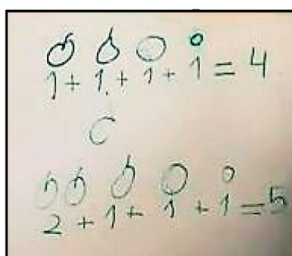 1 + 1 + 1 + 1 = 4
2 + 1 + 1 + 1 = 5